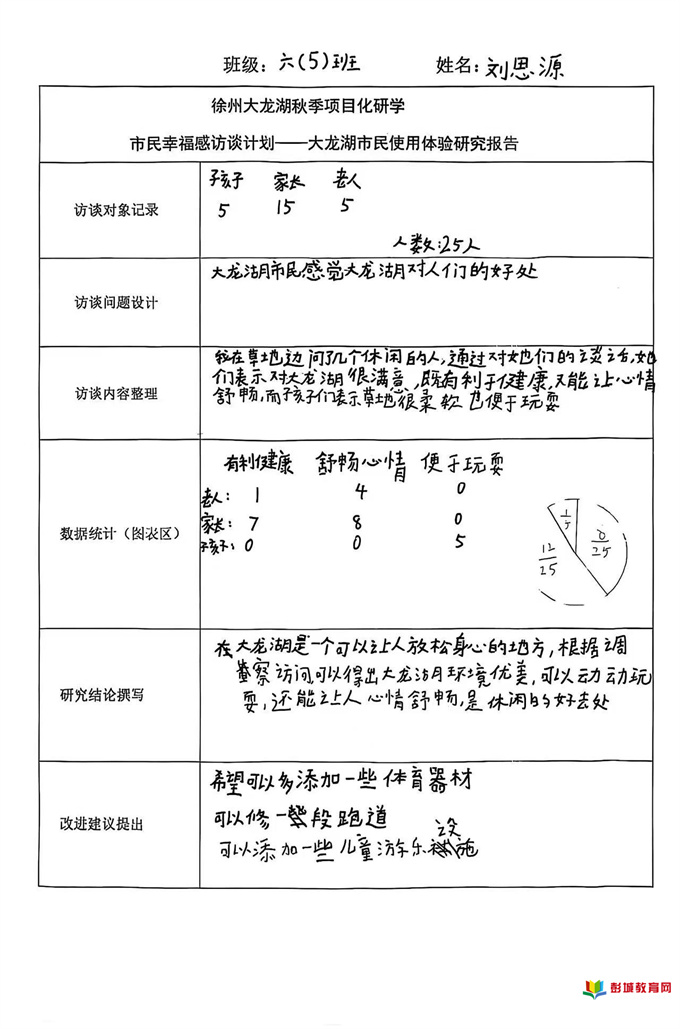 班级：六(5)班 姓名：刘思源
徐州大龙湖秋季项目化研学
市民幸福感访谈计划——大龙湖市民使用体验研究报告
访谈对象记录
孩子 家长 老人
5 15 5
人数：25人
访谈问题设计
大龙湖市民感觉大龙湖对人们的好处
访谈内容整理
我在草地边问了几个休闲的人，通过对她们的谈话，她
们表示对大龙湖很满意，既有利于健康，又能让心情
舒畅，而孩子们表示草地很柔软也便于玩耍
数据统计（图表区）
有利健康 舒畅心情 便于玩耍
老人： 1 4 0
家长： 7 8 0
孩子： 0 0 5
1/5
8/25
12/25
研究结论撰写
在大龙湖是一个可以让人放松身心的地方，根据调
察访问可以得出大龙湖环境优美，可以动动玩
耍，还能让人心情舒畅，是休闲的好去处
改进建议提出
希望可以多添加一些体育器材
可以修一段跑道
可以添加一些儿童游乐设施
彭城教育网